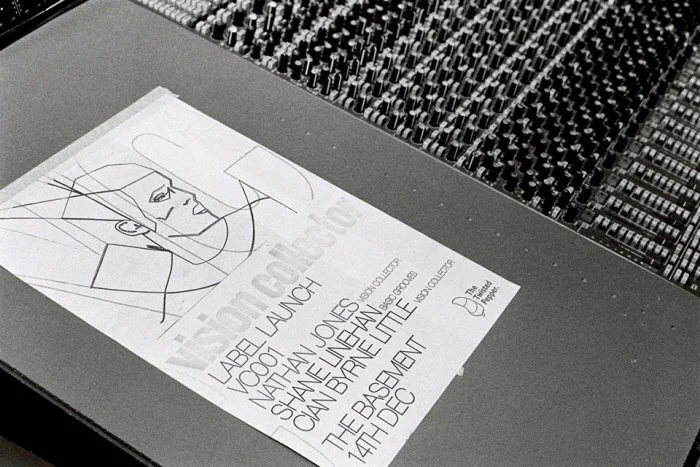 vision collector
LABEL LAUNCH
VC001
NATHAN JONES VISION COLLECTOR
SHANE LINEHAN BASIC GROOVES
CIAN BYRNE LITTLE VISION COLLECTOR
THE BASEMENT
14TH DEC
The
Twisted
Pepper.